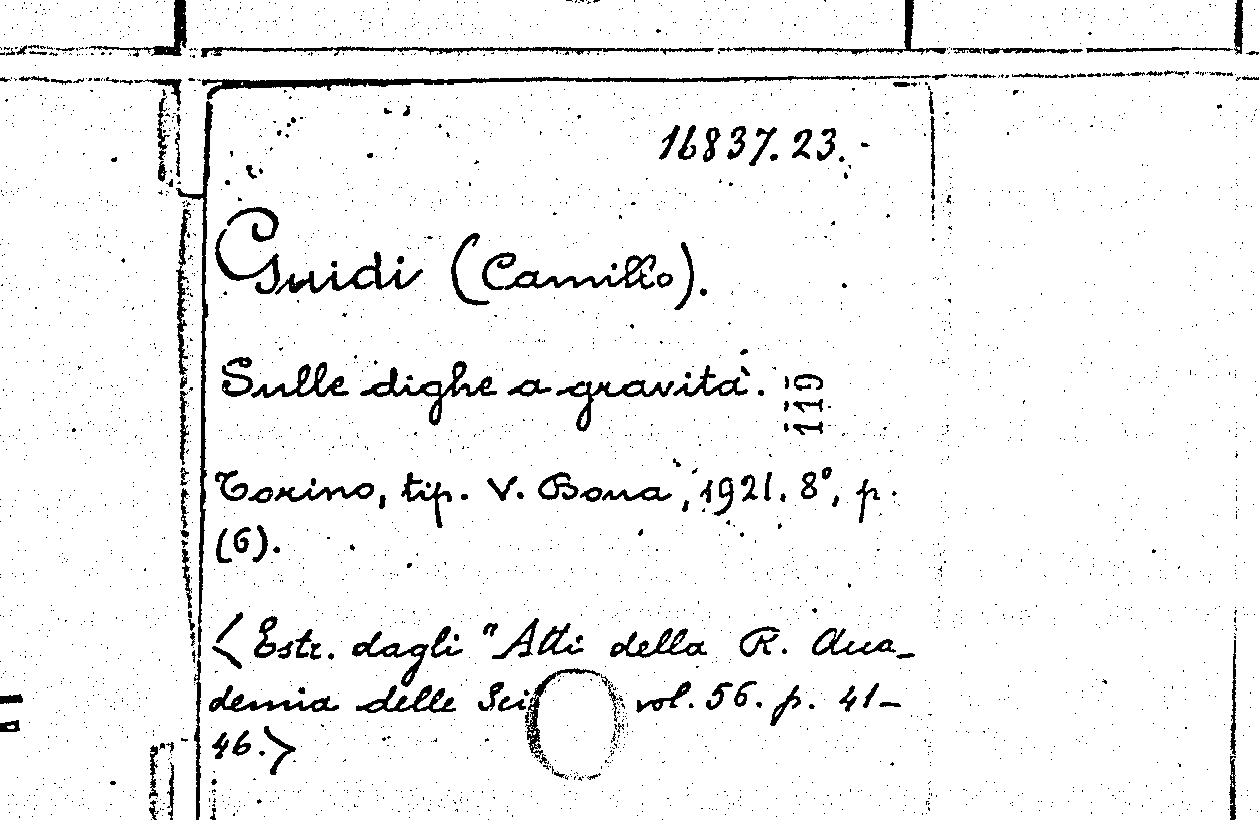 16837.23.-
Guidi (Camillo).
Sulle dighe a gravità.
119
Torino, tip. V. Bona, 1921. 8°, p.
(6).
<Estr. dagli "Atti della R. Acca-
demia delle Sci vol. 56. p. 41-
46.>